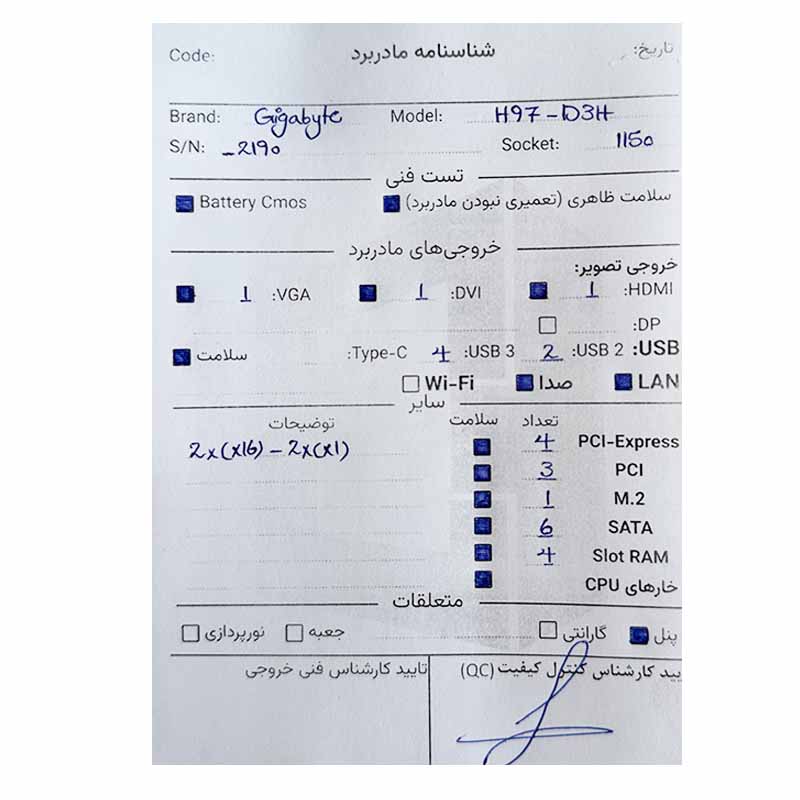 Code: شناسنامه مادربرد تاریخ:
Brand: Gigabyte Model: H97-D3H
S/N: _2190 Socket: 1150
تست فنی
سلامت ظاهری (تعمیری نبودن مادربرد) Battery Cmos
خروجی‌های مادربرد
خروجی تصویر:
HDMI: 1 DVI: 1 VGA: 1
DP:
USB: USB 2: 2 USB 3: 4 Type-C: سلامت
LAN صدا Wi-Fi
سایر
تعداد سلامت توضیحات
PCI-Express 4 2x(x16) - 2x(x1)
PCI 3
M.2 1
SATA 6
Slot RAM 4
خارهای CPU
متعلقات
پنل گارانتی جعبه نورپردازی
یید کارشناس کنترل کیفیت (QC) تایید کارشناس فنی خروجی